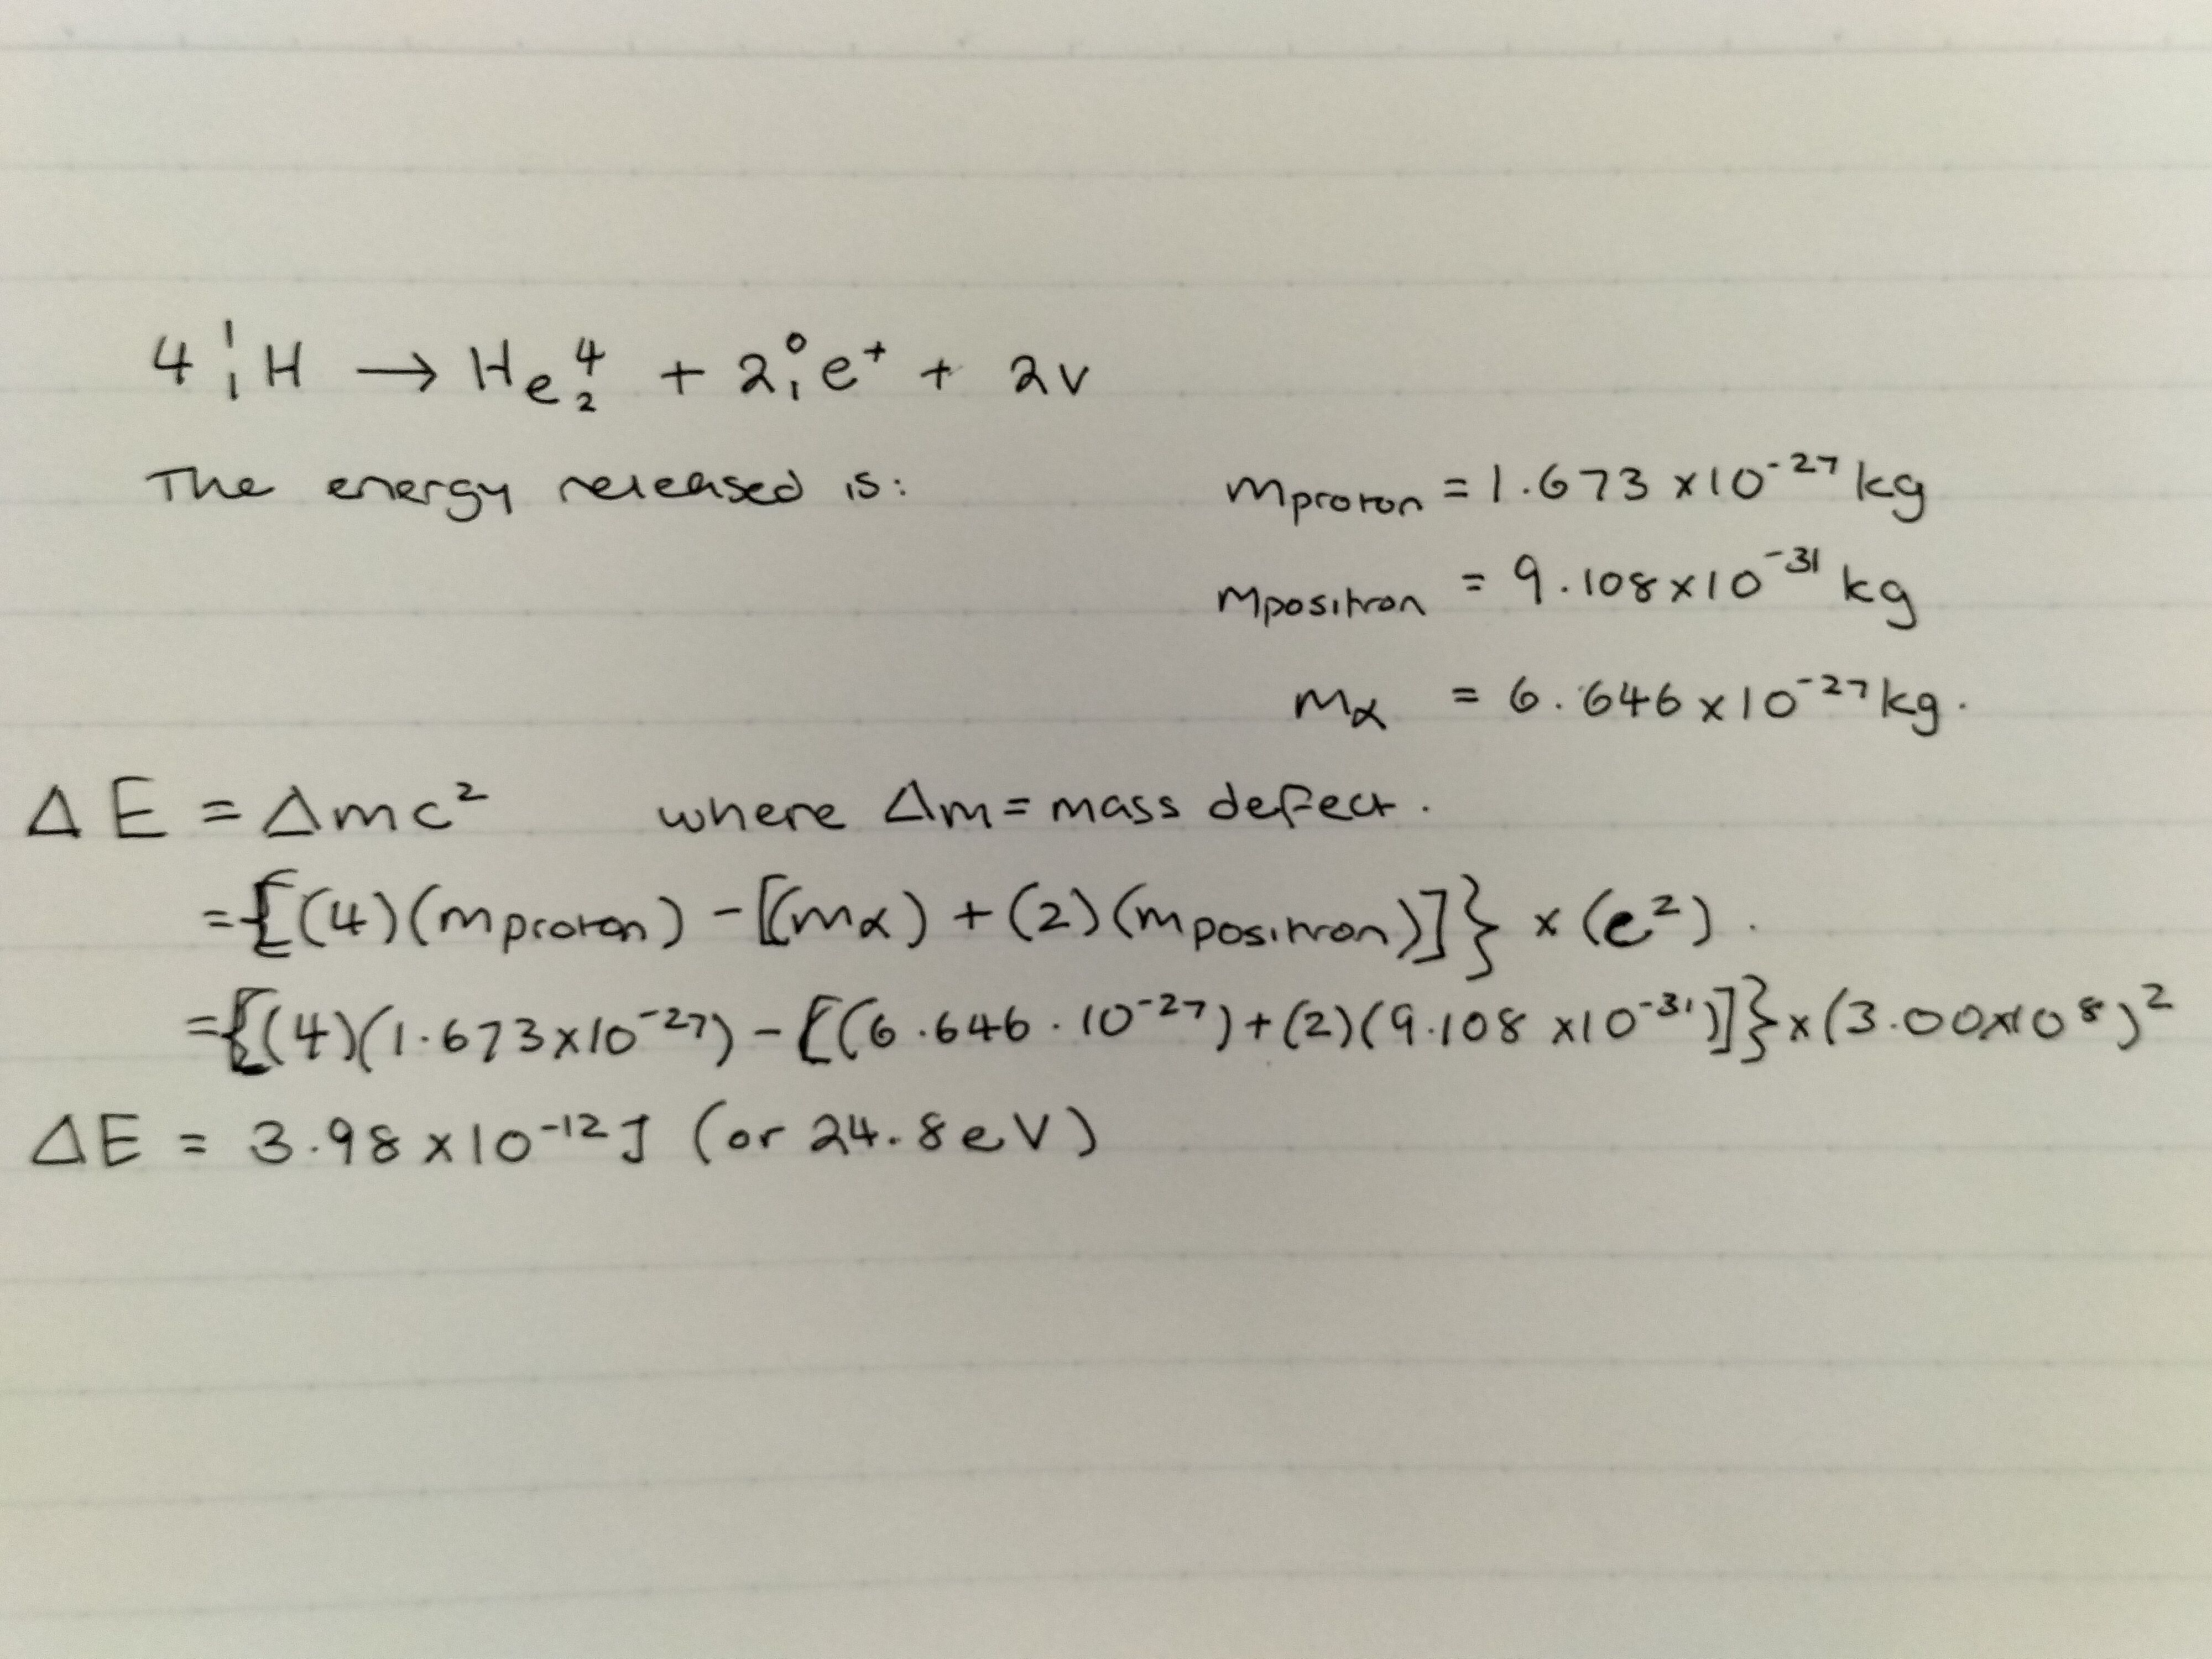 4 ¹₁H → He⁴₂ + 2⁰₁e⁺ + 2v
The energy released is:
mproton = 1.673 x10⁻²⁷ kg
mpositron = 9.108x10⁻³¹ kg
mα = 6.646x10⁻²⁷kg.
ΔE = Δmc² where Δm = mass defect.
={(4)(mproton) - [(mα) + (2)(mpositron)]} x (e²).
={(4)(1.673x10⁻²⁷) - [(6.646 . 10⁻²⁷) + (2)(9.108 x10⁻³¹)]} x (3.00x10⁸)²
ΔE = 3.98 x10⁻¹²J (or 24.8eV)